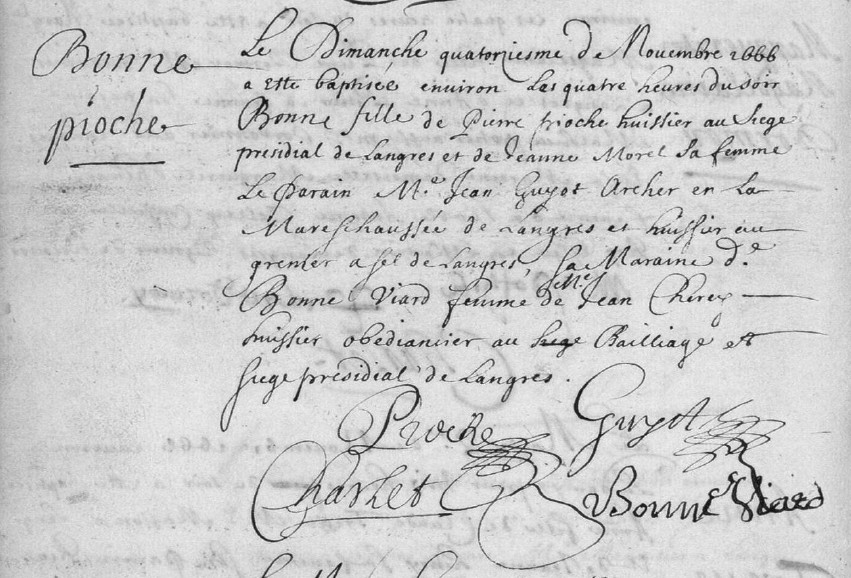 Bonne
pioche
Le Dimanche quatorziesme de Novembre 1666
a Este baptisée environ Les quatre heures du soir
Bonne fille de Pierre pioche huissier au siege
presidial de Langres et de Jeanne Morel sa femme
Le parain M.e Jean Guyot Archer en La
Mareschaussée de Langres et huissier au
grenier a sel de Langres, sa Maraine d.e
Bonne Viard femme de M.e Jean
huissier au siege Bailliage et
siege presidial de Langres.
Pioche Guyot
Charlet Bonne Viard